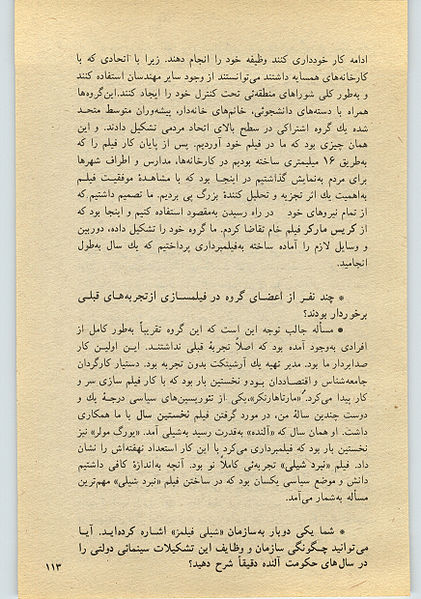 ادامه کار خودداری کنند وظیفه خود را انجام دهند. زیرا با اتحادی که با
کارخانه‌های همسایه داشتند می‌توانستند از وجود سایر مهندسان استفاده کنند
و به‌طور کلی شوراهای منطقه‌ئی تحت کنترل خود را ایجاد کنند. این‌گروه‌ها
همراه با دسته‌های دانشجوئی، خانم‌های خانه‌دار، پیشه‌وران متوسط متحد
شده یك گروه اشتراکی در سطح بالای اتحاد مردمی تشکیل دادند. و این
همان چیزی بود که ما در فیلم خود آوردیم. پس از پایان کار فیلم را که
به‌طریق ۱۶ میلیمتری ساخته بودیم در کارخانه‌ها، مدارس و اطراف شهرها
برای مردم به‌نمایش گذاشتیم در اینجا بود که با مشاهدهٔ موفقیت فیلم
به‌اهمیت یك اثر تجزیه و تحلیل کنندهٔ بزرگ پی بردیم. ما تصمیم داشتیم که
از تمام نیروهای خود در راه رسیدن به‌مقصود استفاده کنیم و اینجا بود که
از کریس مارکر فیلم خام تقاضا کردم. ما گروه خود را تشکیل داده، دوربین
و وسایل لازم را آماده ساخته به‌فیلمبرداری پرداختیم که یك سال به‌طول
انجامید.
* چند نفر از اعضای گروه در فیلمسازی ازتجربه‌های قبلی
برخوردار بودند؟
• مسأله جالب توجه این است که این گروه تقریباً به‌طور کامل از
افرادی به‌وجود آمده بود که اصلاً تجربهٔ قبلی نداشتند. این اولین کار
صدابردار ما بود. مدیر تهیه یك آرشیتکت بدون تجربه بود. دستیار کارگردان
جامعه‌شناس و اقتصاددان بودو نخستین بار بود که با کار فیلم سازی سر و
کار پیدا می‌کرد. «مارتاهارنکر»،یکی از تئوریسین‌های سیاسی درجهٔ یك و
دوست چندین سالهٔ من، در مورد گرفتن فیلم نخستین سال با ما همکاری
داشت. او همان سال که «آلنده» به‌قدرت رسید به‌شیلی آمد. «یورگ مولر» نیز
نخستین بار بود که فیلمبرداری می‌کرد با این کار استعداد نهفته‌اش را نشان
داد. فیلم «نبرد شیلی» تجربه‌ئی کاملاً نو بود. آنچه به‌اندازهٔ کافی داشتیم
دانش و موضع سیاسی یکسان بود که در ساختن فیلم «نبرد شیلی» مهم‌ترین
مسأله به‌شمار می‌آمد.
* شما یکی دوبار به‌سازمان «شیلی فیلمز» اشاره کرده‌اید. آیا
می‌توانید چگونگی سازمان و وظایف این تشکیلات سینمائی دولتی را
در سال‌های حکومت آلنده دقیقاً شرح دهید؟
۱۱۳